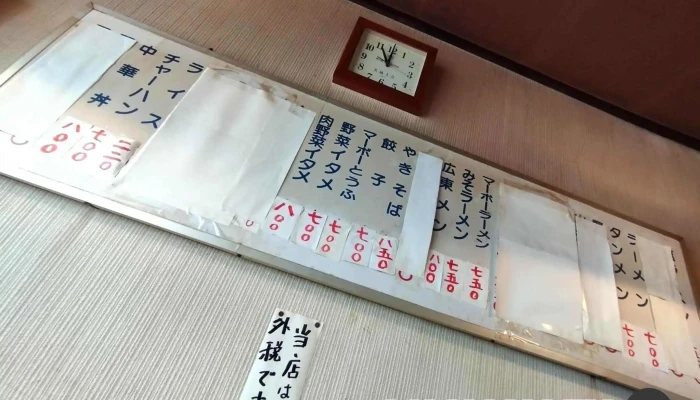 ラーメン
七〇〇
タンメン
七〇〇
マーボーラーメン
七五〇
みそラーメン
七五〇
広東メン
八〇〇
やきそば
八五〇
餃子
七〇〇
マーボーとうふ
七〇〇
野菜イタメ
七〇〇
肉野菜イタメ
八〇〇
ライス
二二〇
チャーハン
七〇〇
中華丼
八〇〇
当店は
外税で